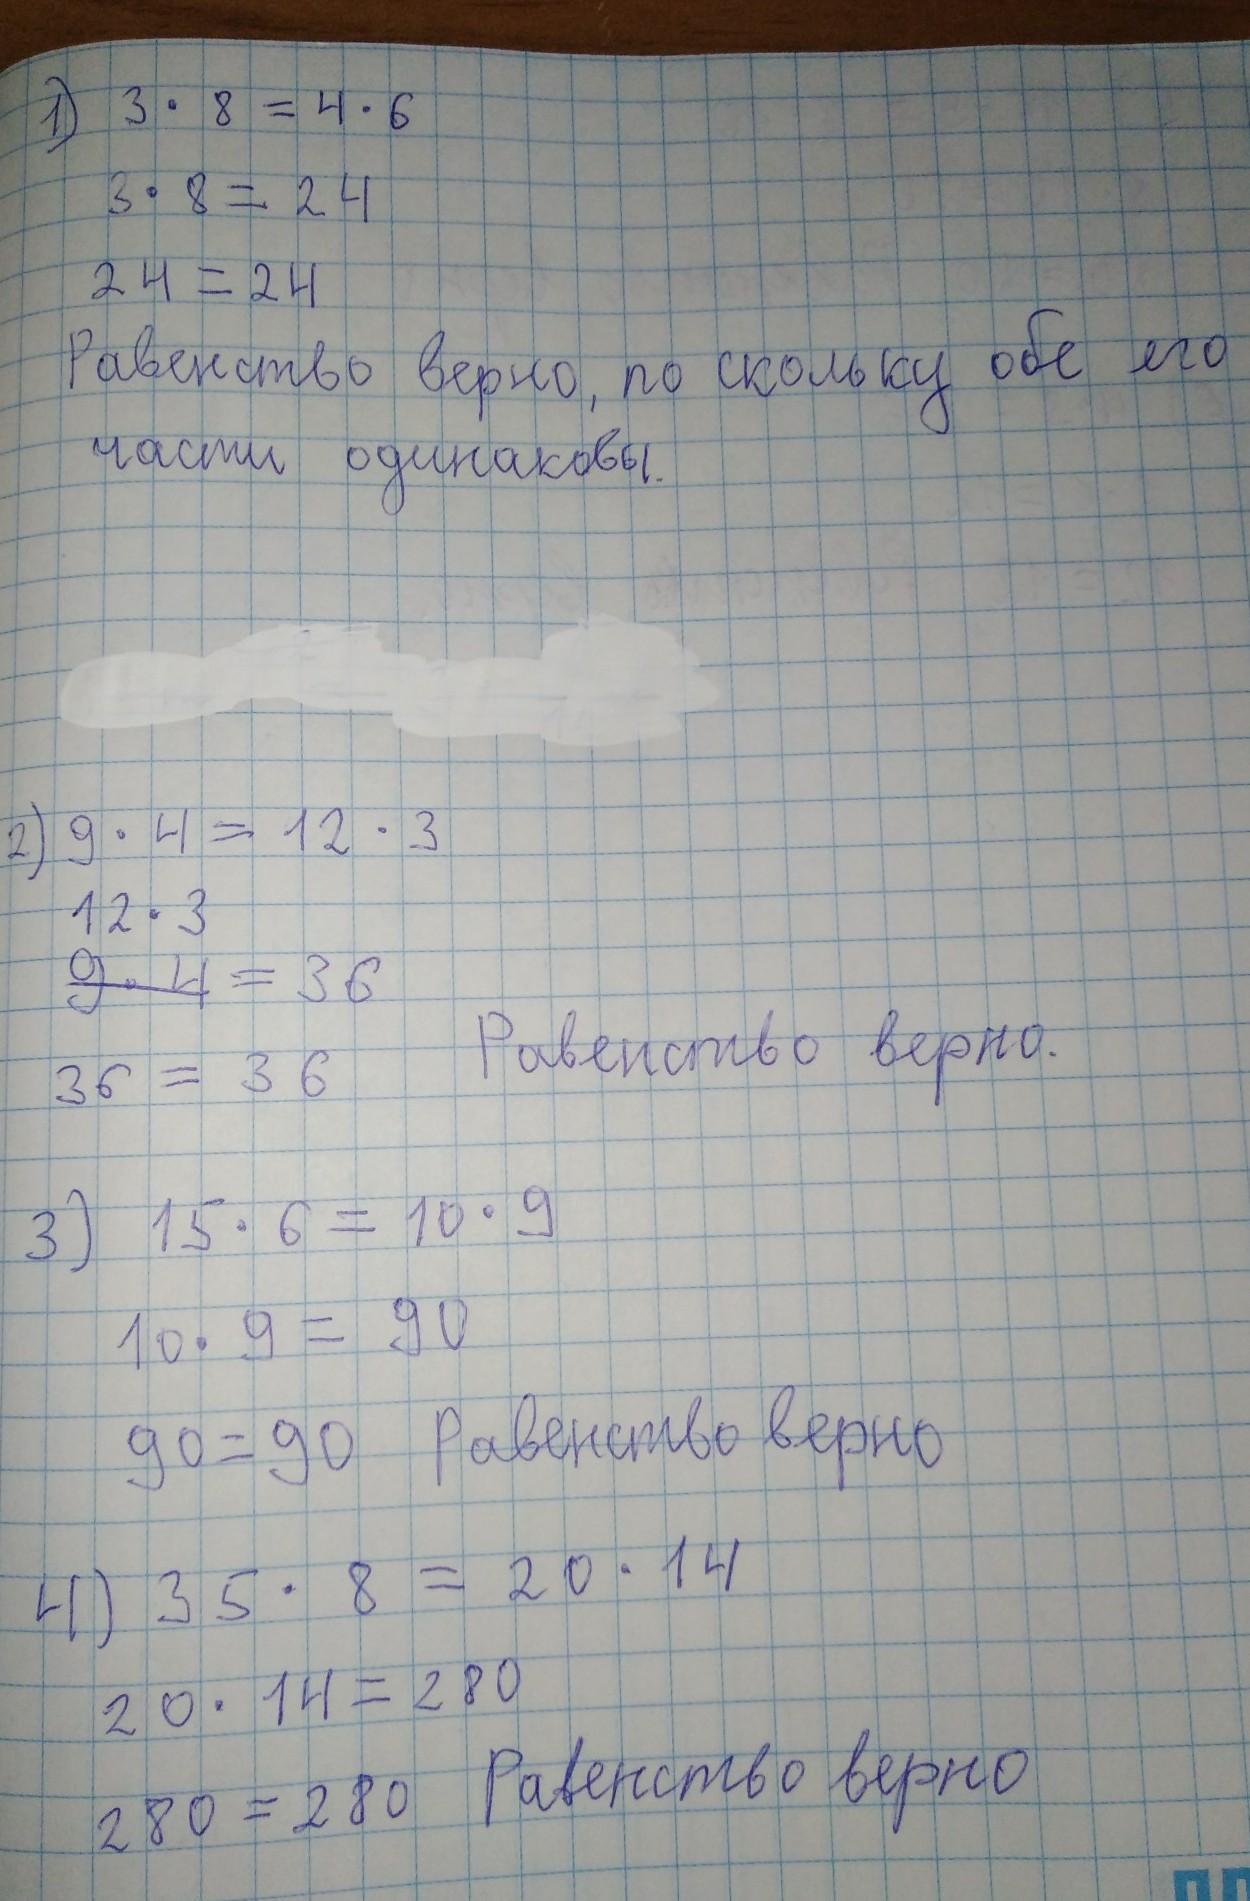 1) 3 · 8 = 4 · 6
3 · 8 = 24
24 = 24
Равенство верно, по скольку обе его
части одинаковы.
2) 9 · 4 = 12 · 3
12 · 3
9 · 4 = 36
36 = 36 Равенство верно.
3) 15 · 6 = 10 · 9
10 · 9 = 90
90 = 90 Равенство верно
4) 35 · 8 = 20 · 14
20 · 14 = 280
280 = 280 Равенство верно